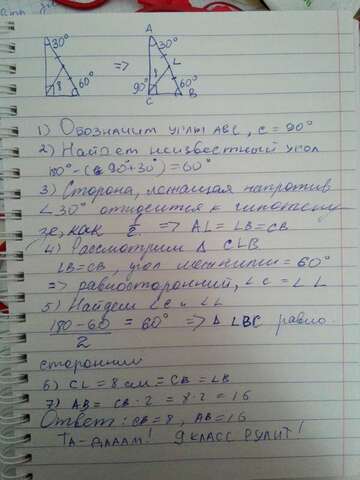 30°
8
60°
=>
A
30°
L
8
90°
60°
C
B
1) Обозначим углы ABC, C = 90°
2) Найдем неизвестный угол
180° - (90° + 30°) = 60°
3) Сторона, лежащая напротив
∠30° относится к гипотену
зе, как 1/2. => AL = LB = CB
4) Рассмотрим Δ CLB
LB = CB, угол между ними = 60°
=> равносторонний, ∠C = ∠L
5) Найдем ∠C и ∠L
180-60/2 = 60° => Δ LBC равно-
сторонний
6) CL = 8 см = CB = LB
7) AB = CB · 2 = 8 · 2 = 16
Ответ: CB = 8, AB = 16
Та-даааам! 9 класс рулит!